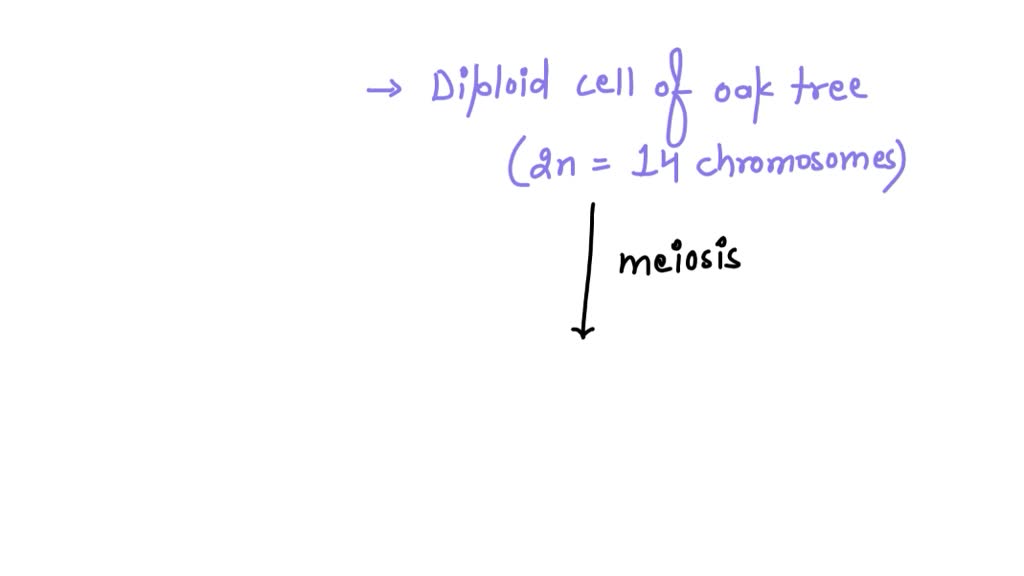 → Diploid cell of oak tree
(2n = 14 chromosomes)
meiosis